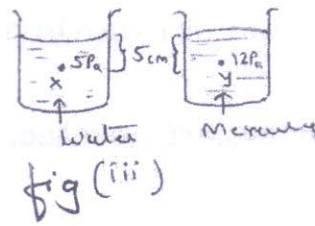 5Pa 5cm 12Pa
x y
Water Mercury
fig (iii)